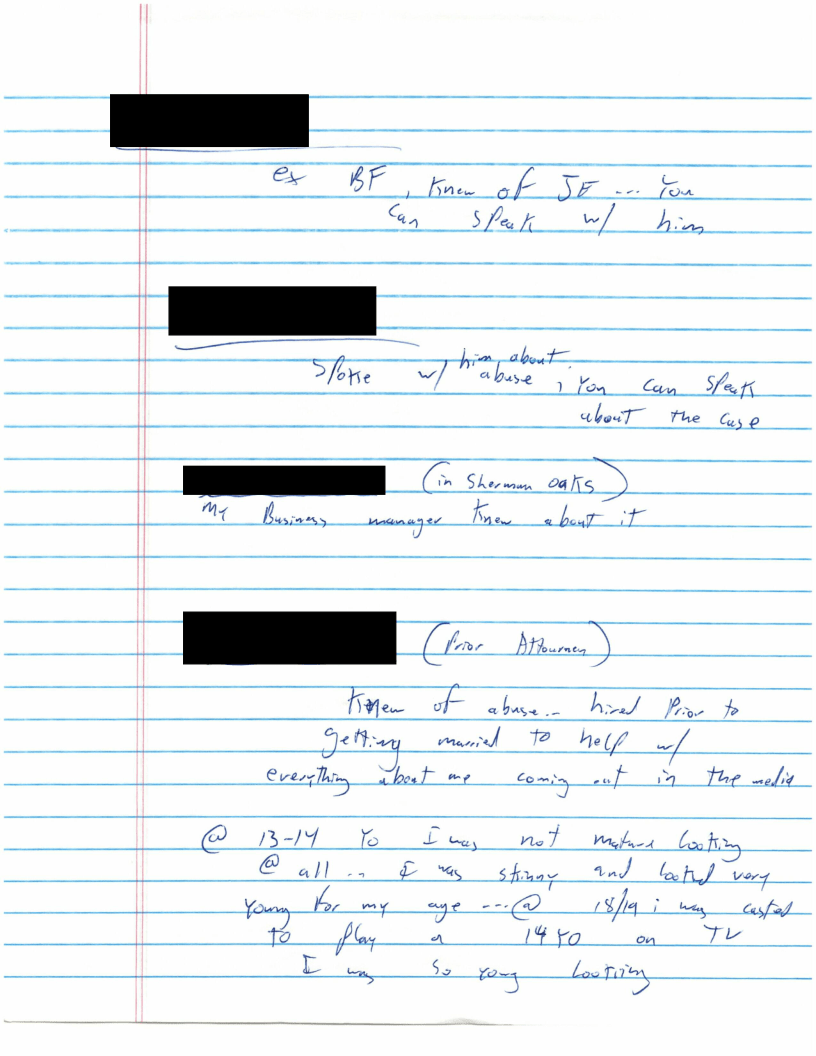 ex BF, Knew of JE --- You
can speak w/ him
Spoke w/ him about
abuse, You can speak
about the case
(in Sherman oaks)
My Business manager knew about it
(Prior Attourney)
Knew of abuse -- hired Prior to
getting married to help w/
everything about me coming out in the media
@ 13-14 Yo I was not mature looking
@ all -- I was skinny and looked very
Young for my age --- @ 18/19 i was casted
to play a 14 YO on TV
I was so young looking